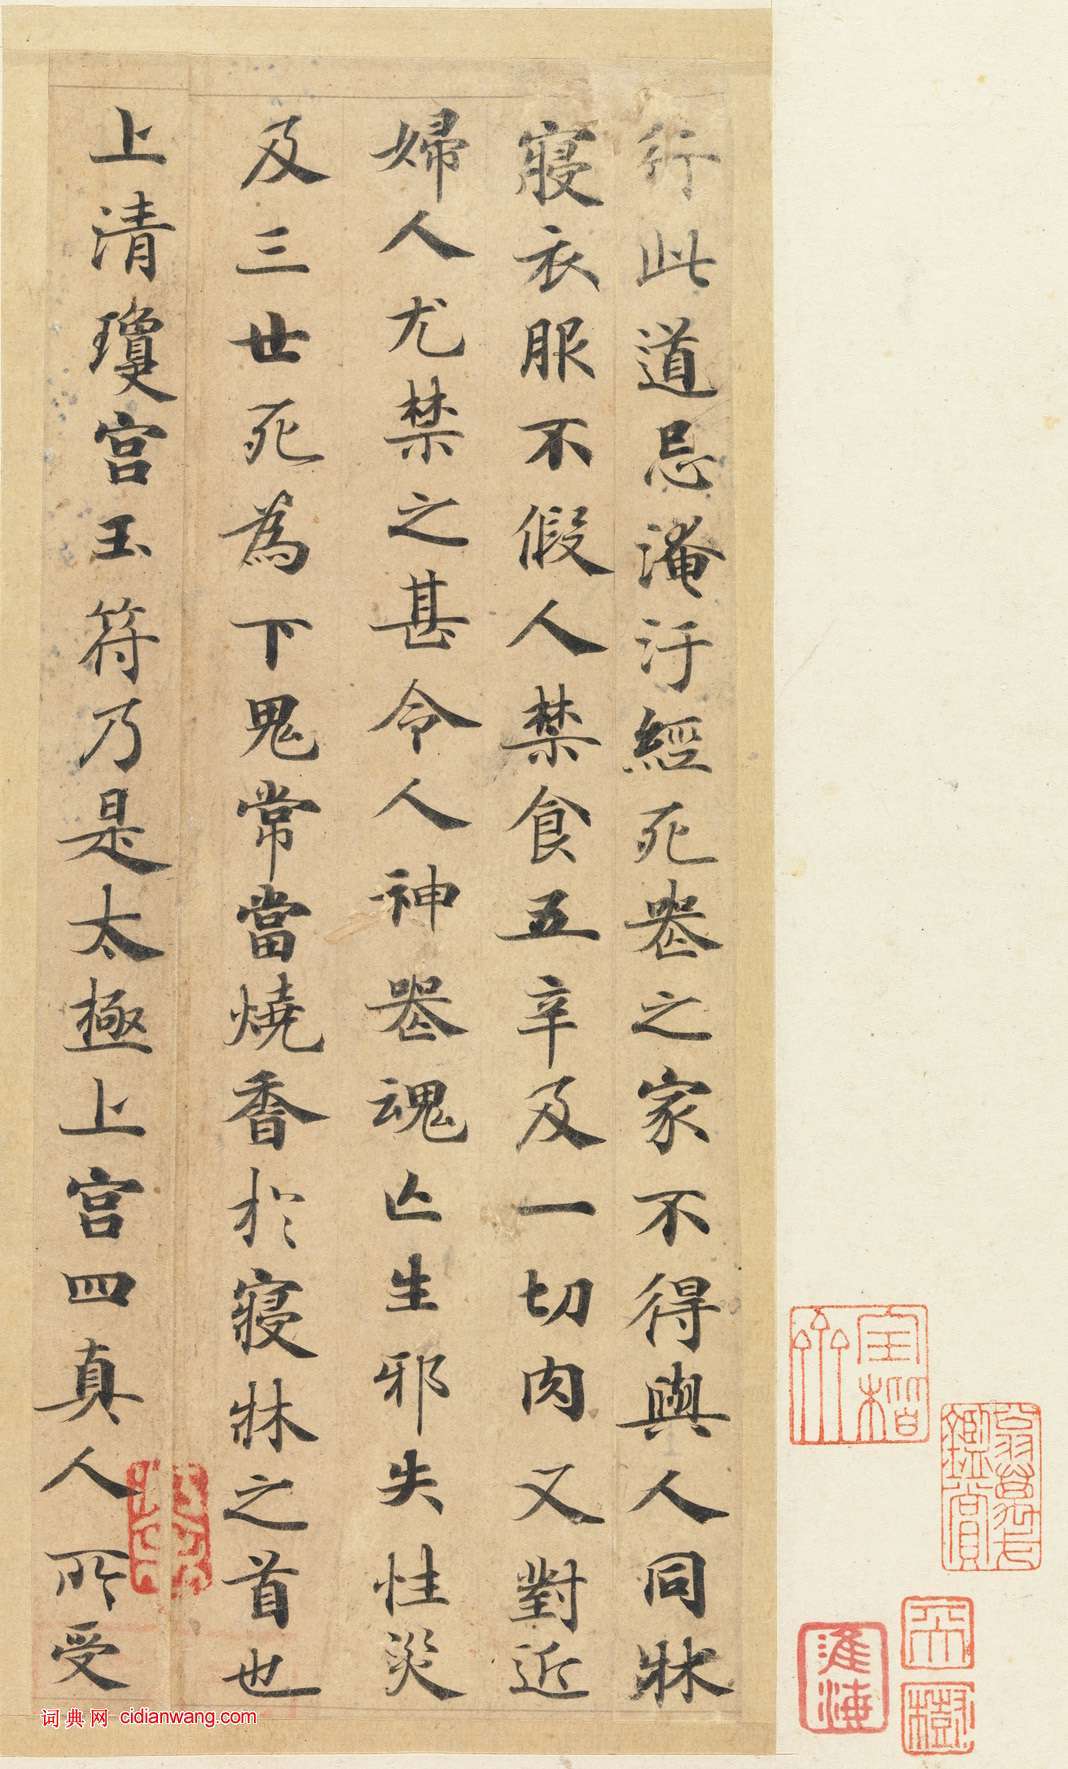 行此道忌淹汙經死丧之家不得與人同牀
寢衣服不假人禁食五辛及一切肉又對近
婦人尤禁之甚令人神喪魂亡生邪失性災
及三世死為下鬼常當燒香於寢牀之首也
上清瓊宮玉符乃是太極上宮四真人所受
鑑賞
淮海
詞典网 cidianwang.com